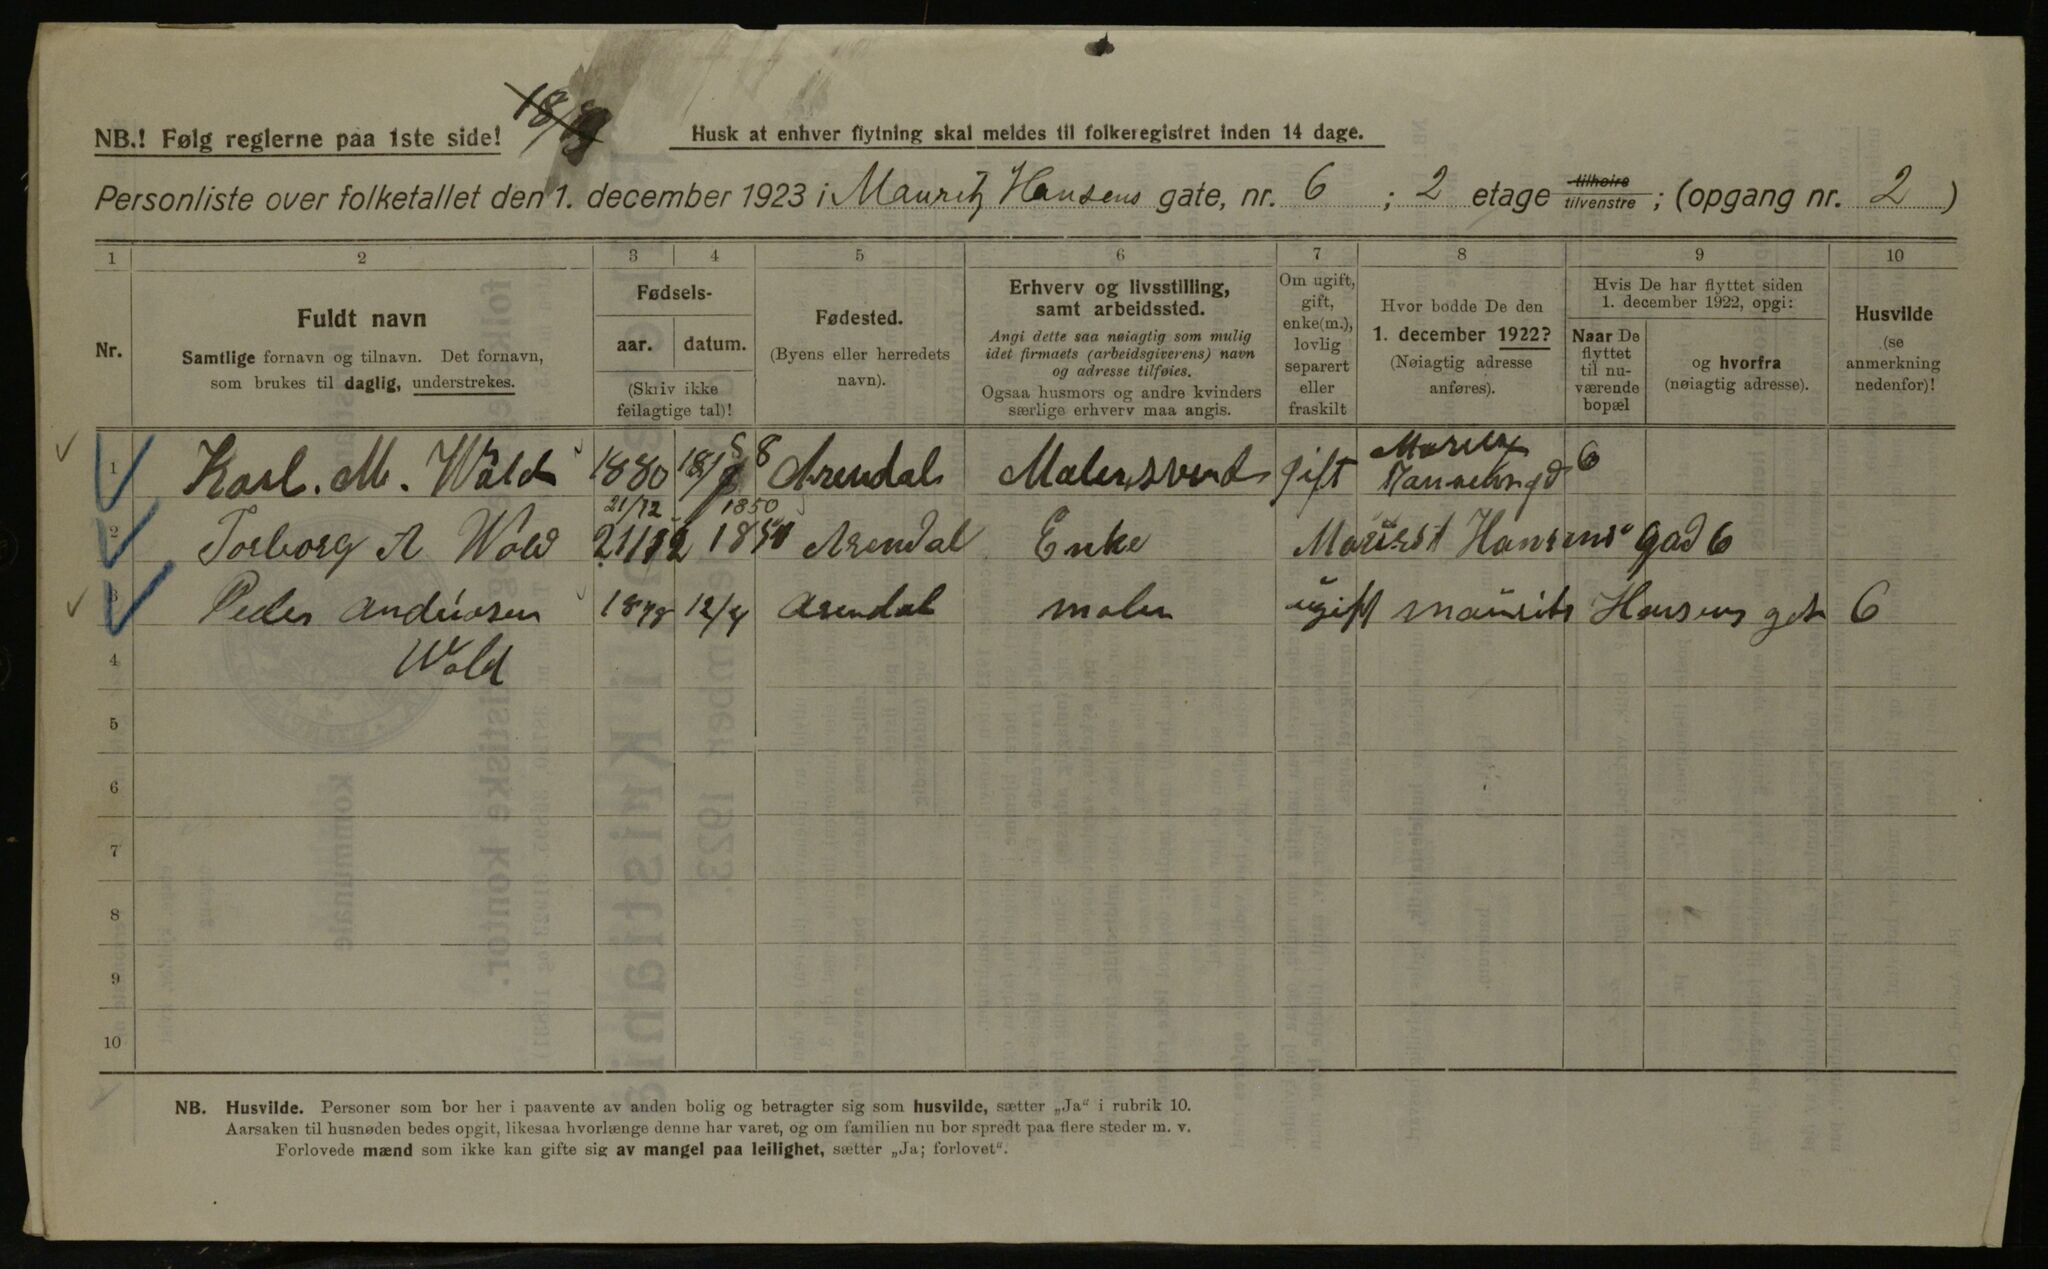 18/8
NB.! Følg reglerne paa 1ste side!
Husk at enhver flytning skal meldes til folkeregistret inden 14 dage.
Personliste over folketallet den 1. december 1923 i Mauritz Hansens gate, nr. 6 ; 2 etage tilhøire tilvenstre ; (opgang nr. 2 )
1 2 3 4 5 6 7 8 9 10
Nr.
Fuldt navn
Samtlige fornavn og tilnavn. Det fornavn,
som brukes til daglig, understrekes.
Fødsels-
aar. datum.
(Skriv ikke
feilagtige tal)!
Fødested.
(Byens eller herredets
navn).
Erhverv og livsstilling,
samt arbeidssted.
Angi dette saa nøiagtig som mulig
idet firmaets (arbeidsgiverens) navn
og adresse tilføies.
Ogsaa husmors og andre kvinders
særlige erhverv maa angis.
Om ugift,
gift,
enke(m.),
lovlig
separert
eller
fraskilt
Hvor bodde De den
1. december 1922?
(Nøiagtig adresse
anføres).
Hvis De har flyttet siden
1. december 1922, opgi:
Naar De
flyttet
til nu-
værende
bopæl
og hvorfra
(nøiagtig adresse).
Husvilde
(se
anmerkning
nedenfor)!
1 Karl. M. Wold 1880 18/8 8 Arendal Malersvend gift 6
21/12 1850
2 Torborg A Wold 21/12 1850 Arendal Enke Maurist Hansens gad 6
3 Peder Andreasen 1878 12/4 Arendal maler ugift Maurits Hansens gt 6
4 Wold
5
6
7
8
9
10
NB. Husvilde. Personer som bor her i paavente av anden bolig og betragter sig som husvilde, sætter „Ja“ i rubrik 10.
Aarsaken til husnøden bedes opgit, likesaa hvorlænge denne har varet, og om familien nu bor spredt paa flere steder m. v.
Forlovede mænd som ikke kan gifte sig av mangel paa leilighet, sætter „Ja; forlovet“.